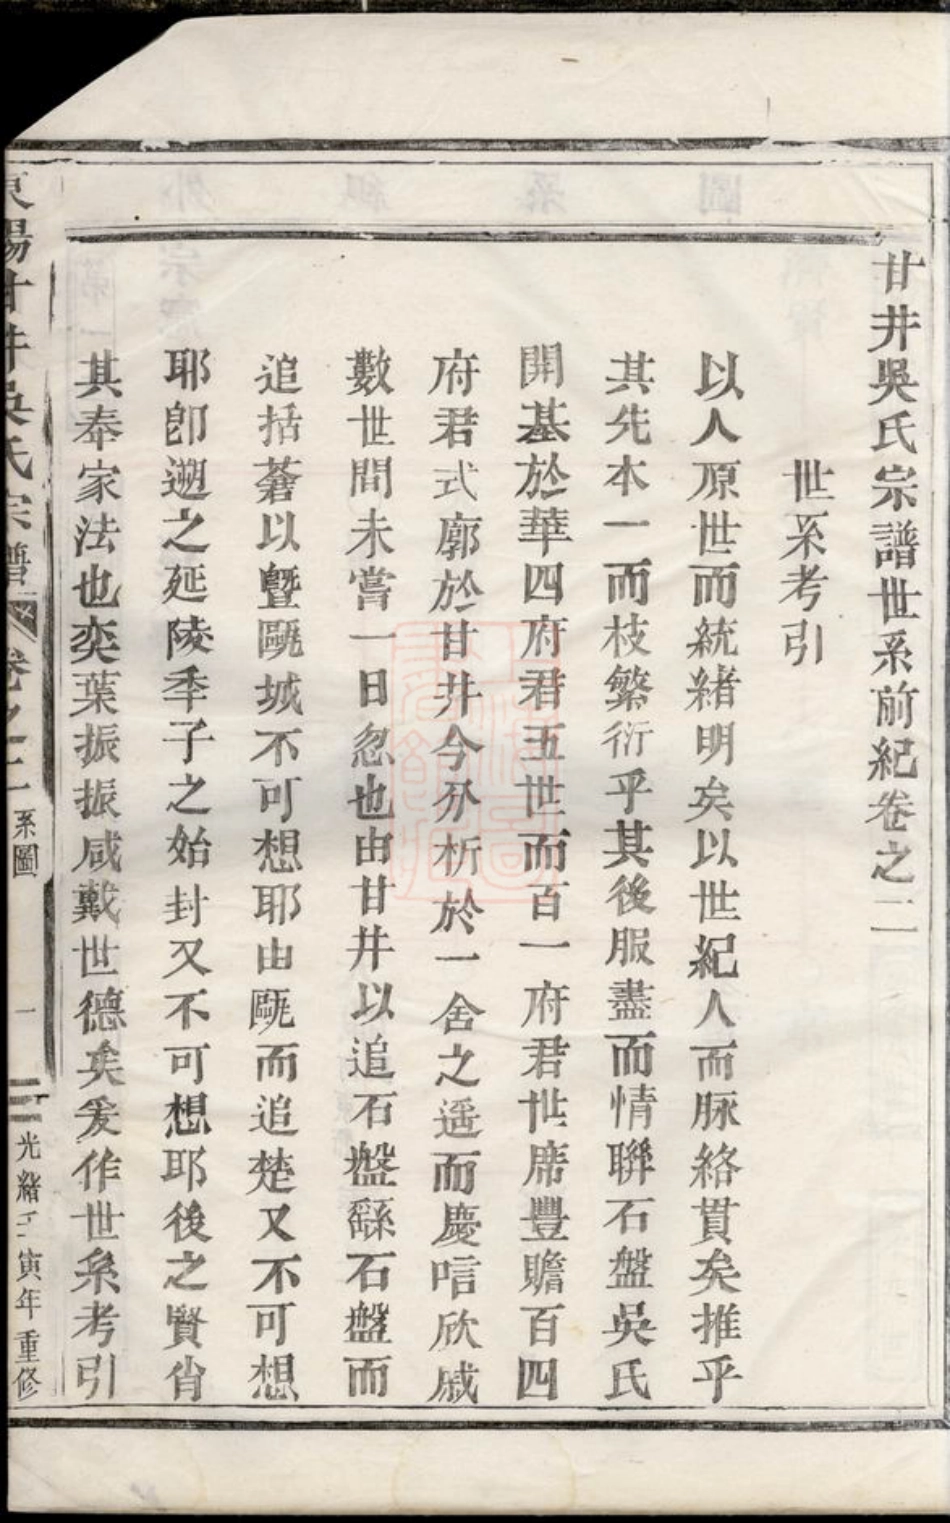 甘井吳氏宗譜世系前紀卷之二
世系考引
以人原世而統緒明矣以世紀人而脉絡貫矣推乎
其先本一而枝繁衍乎其後服盡而情聯石盤吳氏
開基於華四府君五世而百一府君世席豐贍百四
府君式廓於甘井今分析於一舍之遥而慶唁欣戚
數世間未嘗一日忽也由甘井以追石盤繇石盤而
追括蒼以曁甌城不可想耶由甌而追楚又不可想
耶卽遡之延陵季子之始封又不可想耶後之賢肖
其奉家法也奕葉振振咸戴世德矣爰作世系考引
東陽甘井吳氏宗譜 卷之二 系圖 一 光緒壬寅年重修